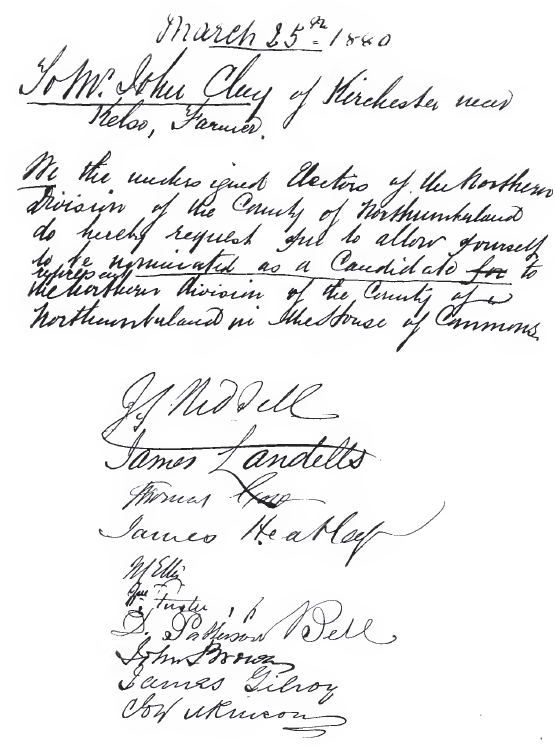 March 25th 1880
To Mr. John Clay of Kirchester near
Kelso, Farmer.
We the undersigned Electors of the Northern
Division of the County of Northumberland
do hereby request you to allow yourself
to be nominated as a Candidate for to
represent
the Northern Division of the County of
Northumberland in the House of Commons.
Riddell
James Landells
Thomas
James Heatley
M Ellis
D. Patterson Bell
John Brown
James Gilroy